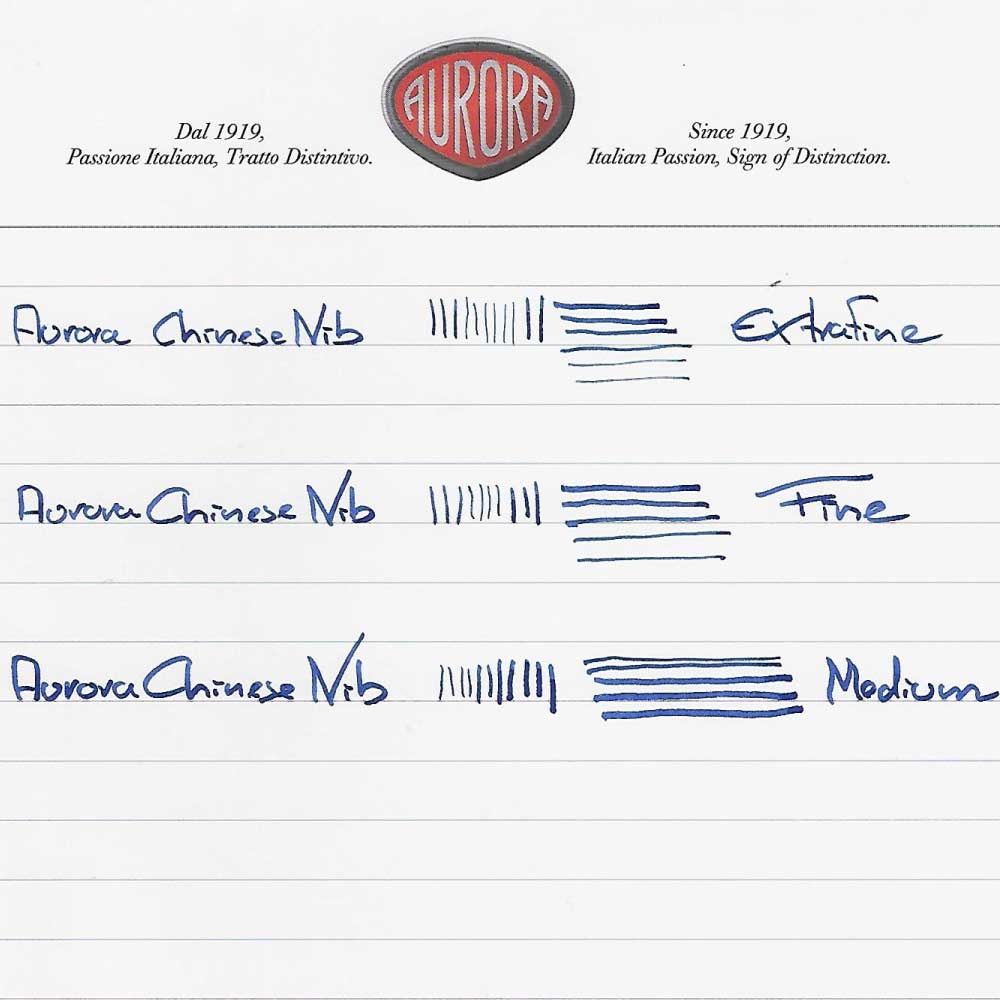 AURORA
Dal 1919,
Passione Italiana, Tratto Distintivo.
Since 1919,
Italian Passion, Sign of Distinction.
Aurora Chinese Nib Extrafine
Aurora Chinese Nib Fine
Aurora Chinese Nib Medium